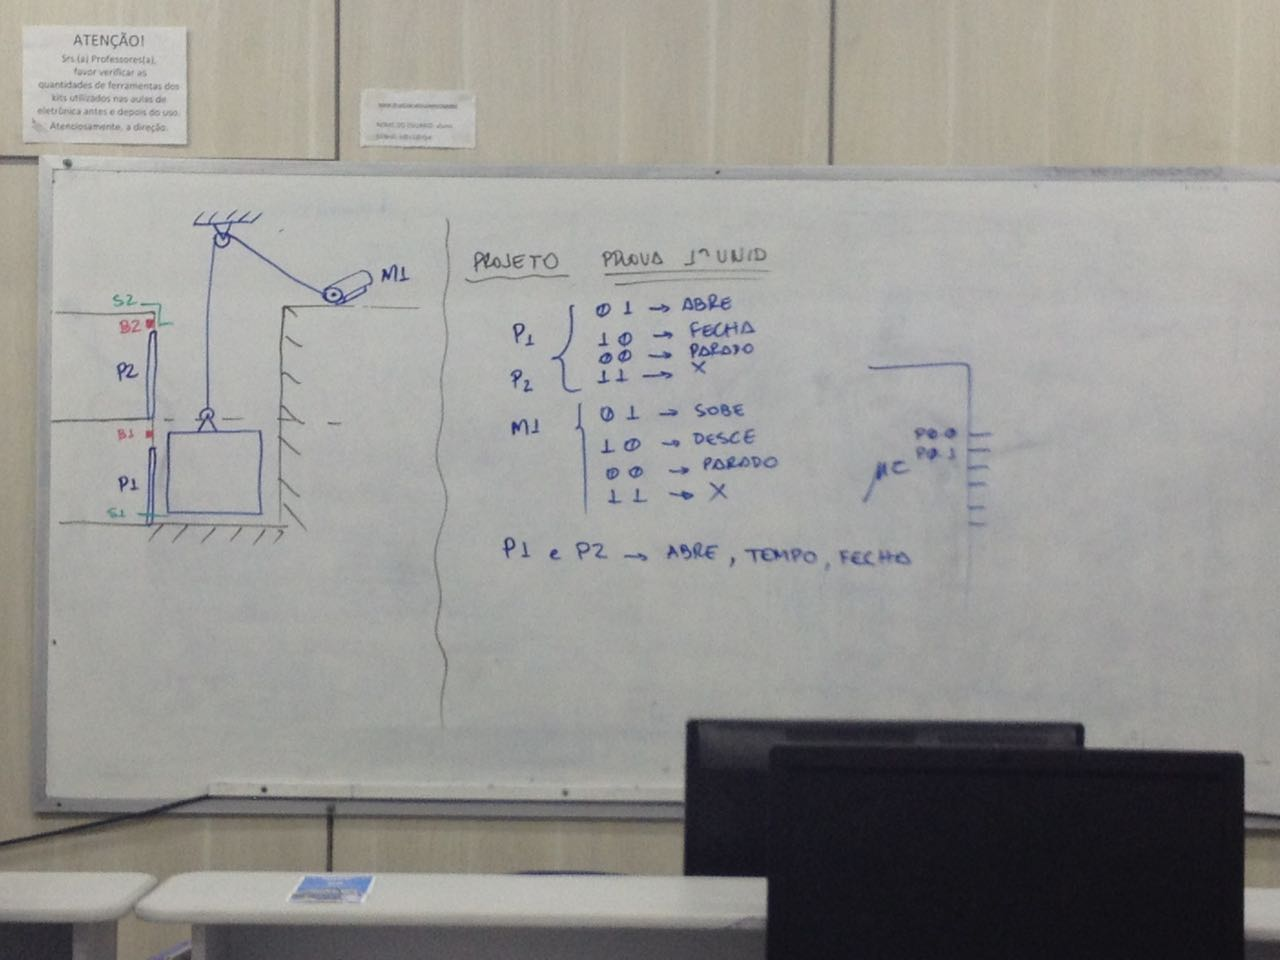 ATENÇÃO!
Srs.(a) Professores(a),
favor verificar as
quantidades de ferramentas dos
kits utilizados nas aulas de
eletrônica antes e depois do uso.
Atenciosamente, a direção.
M1
S2
B2
P2
B1
P1
S1
PROJETO PROVA 1ª UNID
P1
P2
0 1 → ABRE
1 0 → FECHA
0 0 → PARADO
1 1 → X
M1
0 1 → SOBE
1 0 → DESCE
0 0 → PARADO
1 1 → X
P1 e P2 → ABRE, TEMPO, FECHA
P0.0
P0.1
μC